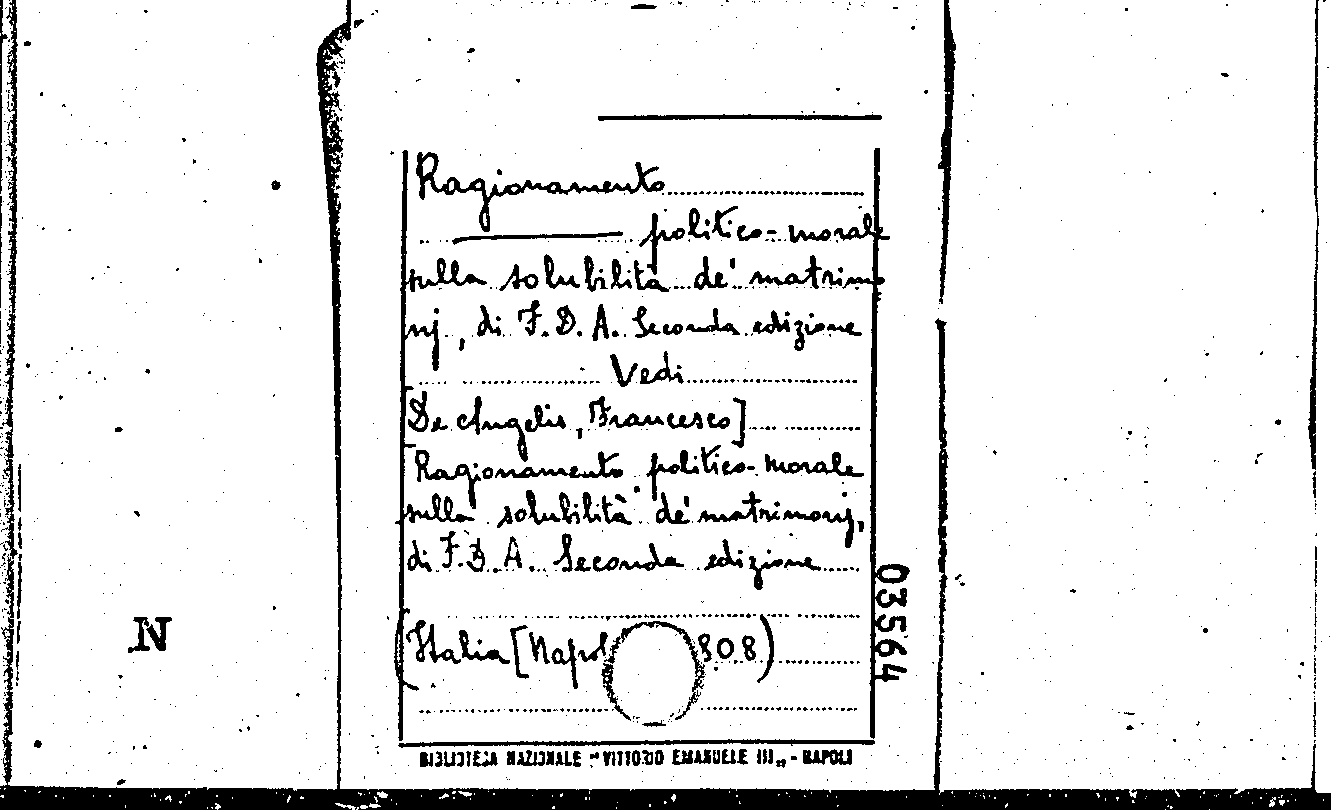 Ragionamento
politico-morale
sulla solubilità de' matrimo
nj, di F. D. A. Seconda edizione
Vedi
[De Angelis, Francesco]
Ragionamento politico-morale
sulla solubilità de' matrimonj,
di F. D. A. Seconda edizione
(Italia [Napol 808)
BIBLIOTECA NAZIONALE "VITTORIO EMANUELE III„ - NAPOLI
03564
N